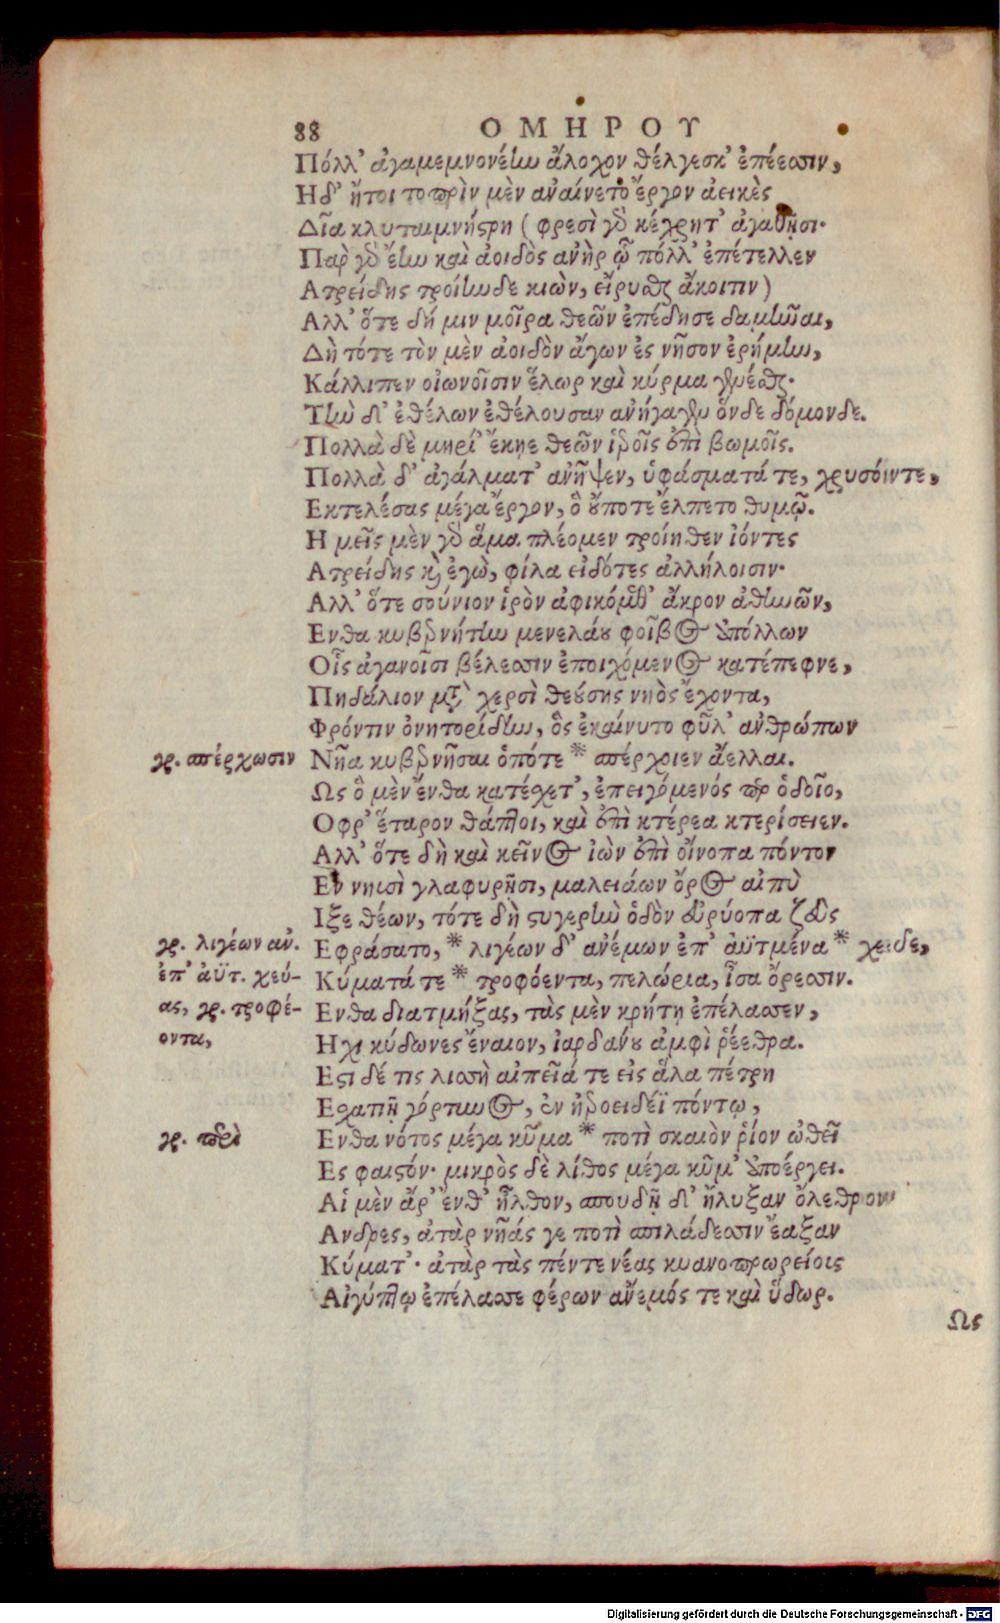 88 ΟΜΗΡΟΥ
Πόλλ' ἀγαμεμνονέην ἄλοχον θέλγεσκ' ἐπέεσσιν,
Ηδ' ἤτοι τοπρὶν μὲν ἀναίνετο ἔργον ἀεικὲς
Δῖα κλυταιμνήστρη (φρεσὶ γδ κέχρητ' ἀγαθῇσι·
Παρ γδ ἔην καὶ ἀοιδὸς ἀνὴρ ᾧ πόλλ' ἐπέτελλεν
Ατρείδης τροίηνδε κιὼν, εἴρυσθαι ἄκοιτιν)
Αλλ' ὅτε δή μιν μοῖρα θεῶν ἐπέδησε δαμῆναι,
Δὴ τότε τὸν μὲν ἀοιδὸν ἄγων ἐς νῆσον ἐρήμην,
Κάλλιπεν οἰωνοῖσιν ἕλωρ καὶ κύρμα γενέσθαι·
Τὴν δ' ἐθέλων ἐθέλουσαν ἀνήγαγεν ὅνδε δόμονδε.
Πολλὰ δὲ μηρί' ἔκηε θεῶν ἱεροῖς ἐπὶ βωμοῖς.
Πολλὰ δ' ἀγάλματ' ἀνῆψεν, ὑφάσματά τε, χρυσόντε,
Εκτελέσας μέγα ἔργον, ὃ οὔποτε ἔλπετο θυμῷ.
Ημεῖς μὲν γδ ἅμα πλέομεν τροίηθεν ἰόντες
Ατρείδης καὶ ἐγὼ, φίλα εἰδότες ἀλλήλοισιν·
Αλλ' ὅτε σούνιον ἱρὸν ἀφικόμεθ' ἄκρον ἀθηνῶν,
Ενθα κυβερνήτην μενελάου φοῖβος ἀπόλλων
Οἷς ἀγανοῖσι βέλεσσιν ἐποιχόμενος κατέπεφνε,
Πηδάλιον μετὰ χερσὶ θεούσης νηὸς ἔχοντα,
Φρόντιν ὀνητορίδην, ὃς ἐκαίνυτο φῦλ' ἀνθρώπων
γρ. σπέρχωσιν Νῆα κυβερνῆσαι ὁπότε * σπέρχοιεν ἄελλαι.
Ως ὃ μὲν ἔνθα κατέσχετ', ἐπειγόμενός περ ὁδοῖο,
Οφρ' ἕταρον θάπτοι, καὶ ἐπὶ κτέρεα κτερίσειεν.
Αλλ' ὅτε δὴ καὶ κεῖνος ἰὼν ἐπὶ οἴνοπα πόντον
Εν νηυσὶ γλαφυρῇσι, μαλειάων ὄρος αἰπὺ
Ιξε θέων, τότε δὴ στυγερὴν ὁδὸν εὐρύοπα ζεὺς
γρ. λιγέων ἀν. Εφράσατο, * λιγέων δ' ἀνέμων ἐπ' ἀϋτμένα * χεῖδε,
ἐπ' ἀϋτ. χεύ- Κύματά τε * τροφόεντα, πελώρια, ἶσα ὄρεσσιν.
ας, γρ. τροφέ- Ενθα διατμήξας, τὰς μὲν κρήτῃ ἐπέλασσεν,
οντα, Ηχι κύδωνες ἔναιον, ἰαρδάνου ἀμφὶ ῥέεθρα.
Εστι δέ τις λισσὴ αἰπεῖά τε εἰς ἅλα πέτρη
Εσχατιῇ γόρτυνος, ἐν ἠεροειδέϊ πόντῳ,
γρ. περὶ Ενθα νότος μέγα κῦμα * ποτὶ σκαιὸν ῥίον ὠθεῖ
Ες φαιστόν· μικρὸς δὲ λίθος μέγα κῦμ' ἀποέργει.
Αἱ μὲν ἄρ' ἔνθ' ἦλθον, σπουδῇ δ' ἤλυξαν ὄλεθρον
Ανδρες, ἀτὰρ νῆάς γε ποτὶ σπιλάδεσσιν ἔαξαν
Κύματ'· ἀτὰρ τὰς πέντε νέας κυανοπρωρείοις
Αἰγύπτῳ ἐπέλασσε φέρων ἄνεμός τε καὶ ὕδωρ.
Ως
Digitalisierung gefördert durch die Deutsche Forschungsgemeinschaft - DFG